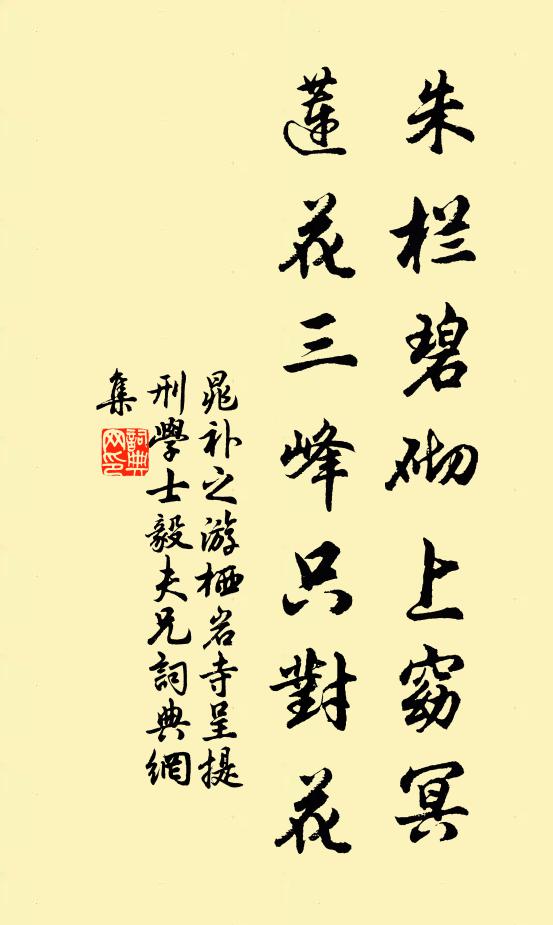 朱栏碧砌上窈冥
蓮花三峰只對花
晁补之游栖岩寺呈提
刑學士毅夫兄詞典網
集
詞典网印